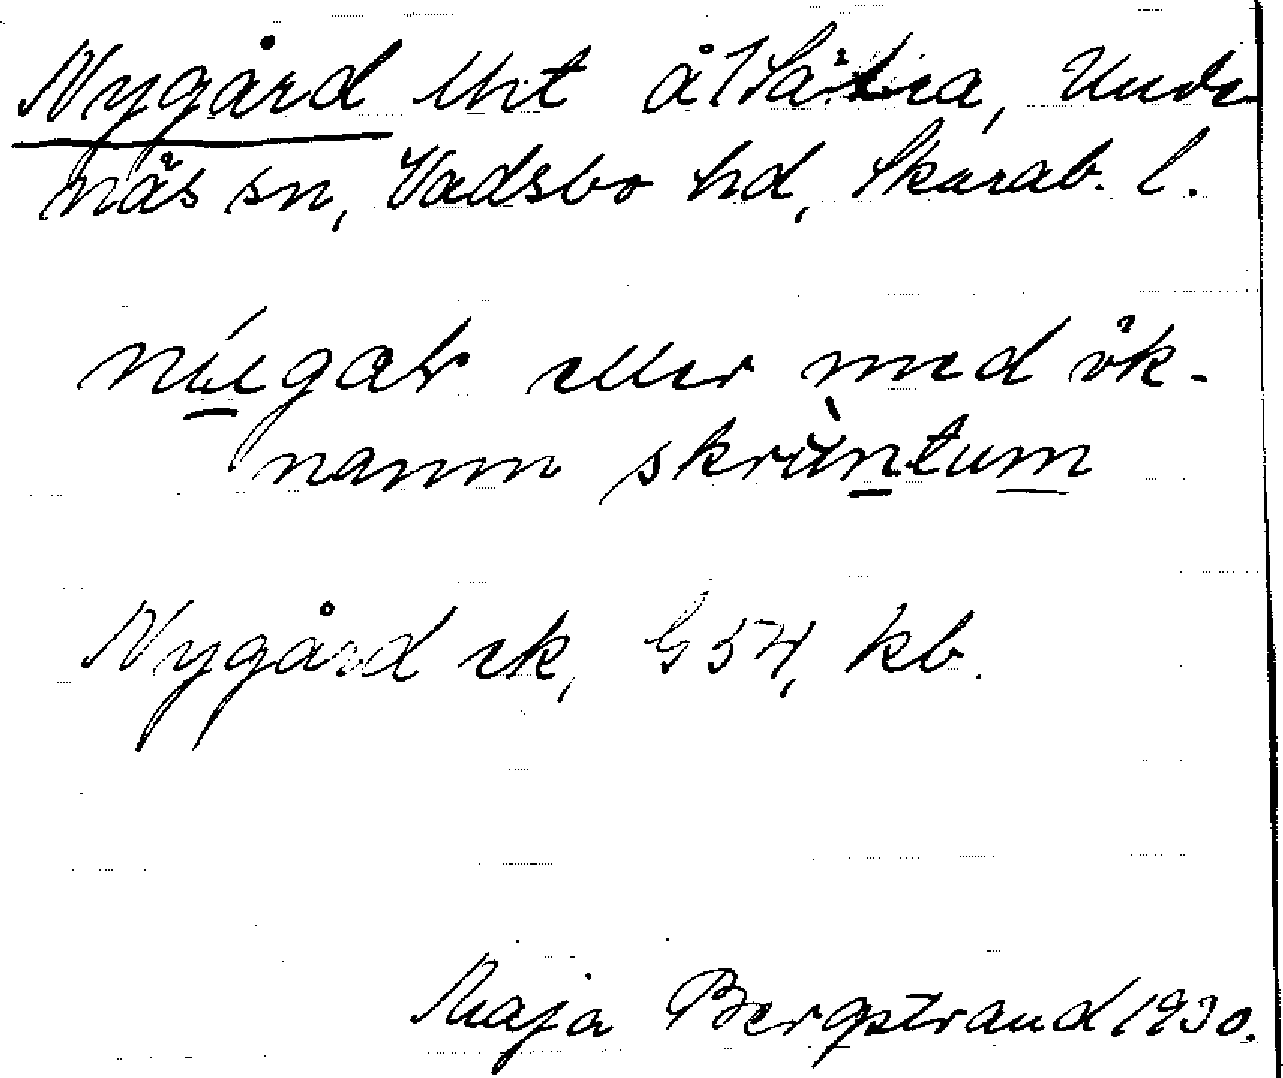 Nygård lht å 1 Sätra, Unde-
näs sn, Vadsbo hd, Skarab. l.
níegaḷr eller med ök-
namn skrùntum
Nygård ek, G 54, kb.
Maja Bergstrand 1930.